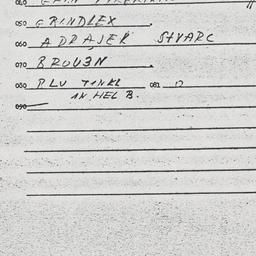 050 GRINDLEX
060 ADRAJER STVARC
070 BROU3N
080 PLU TINKL 081 17
IN HEL B.
090